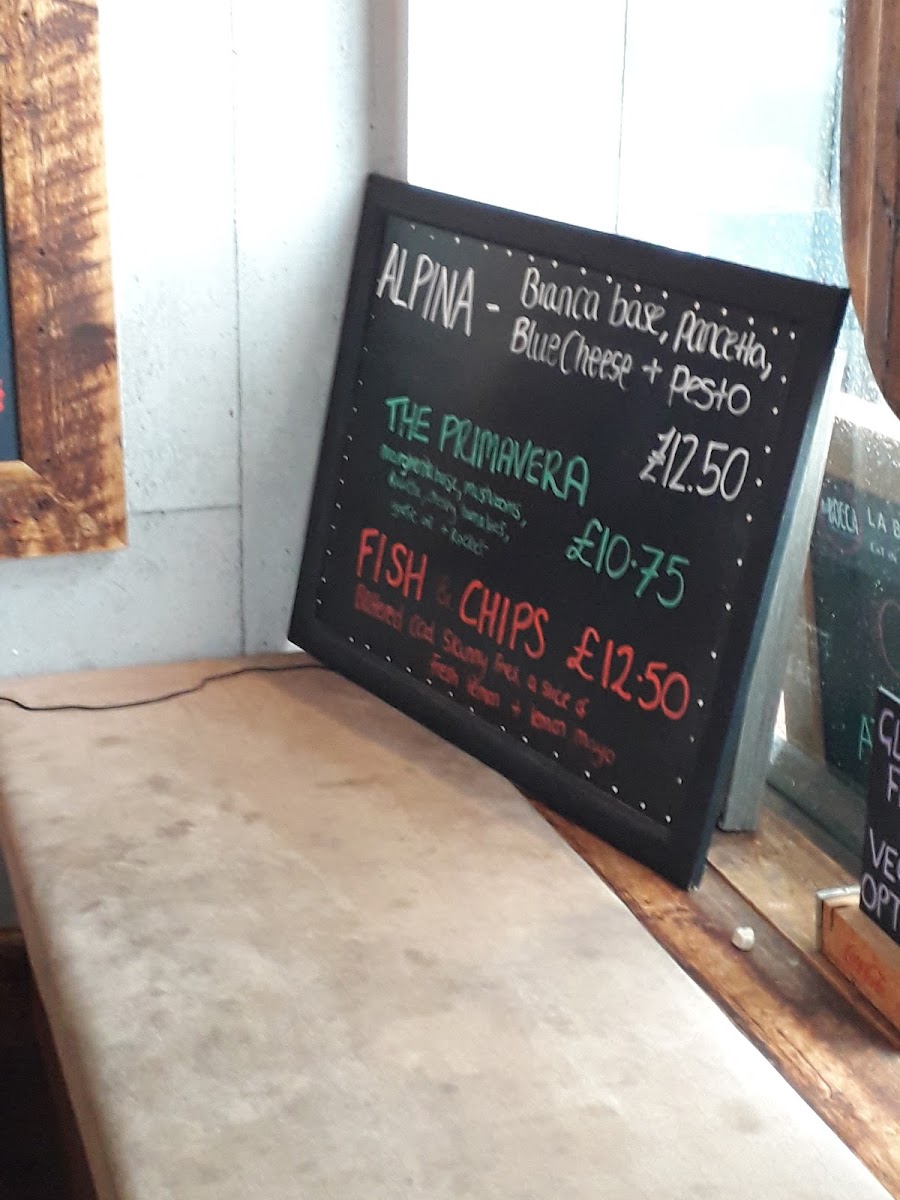 ALPINA - Bianca base, pancetta,
Blue Cheese + pesto
£12.50
THE PRIMAVERA
margherita base, mushrooms,
garlic oil + Rocket
£10.75
FISH & CHIPS £12.50
Battered Cod, Skinny fries, a slice of
fresh lemon + lemon mayo
LA B
GL
F
VEG
OPT